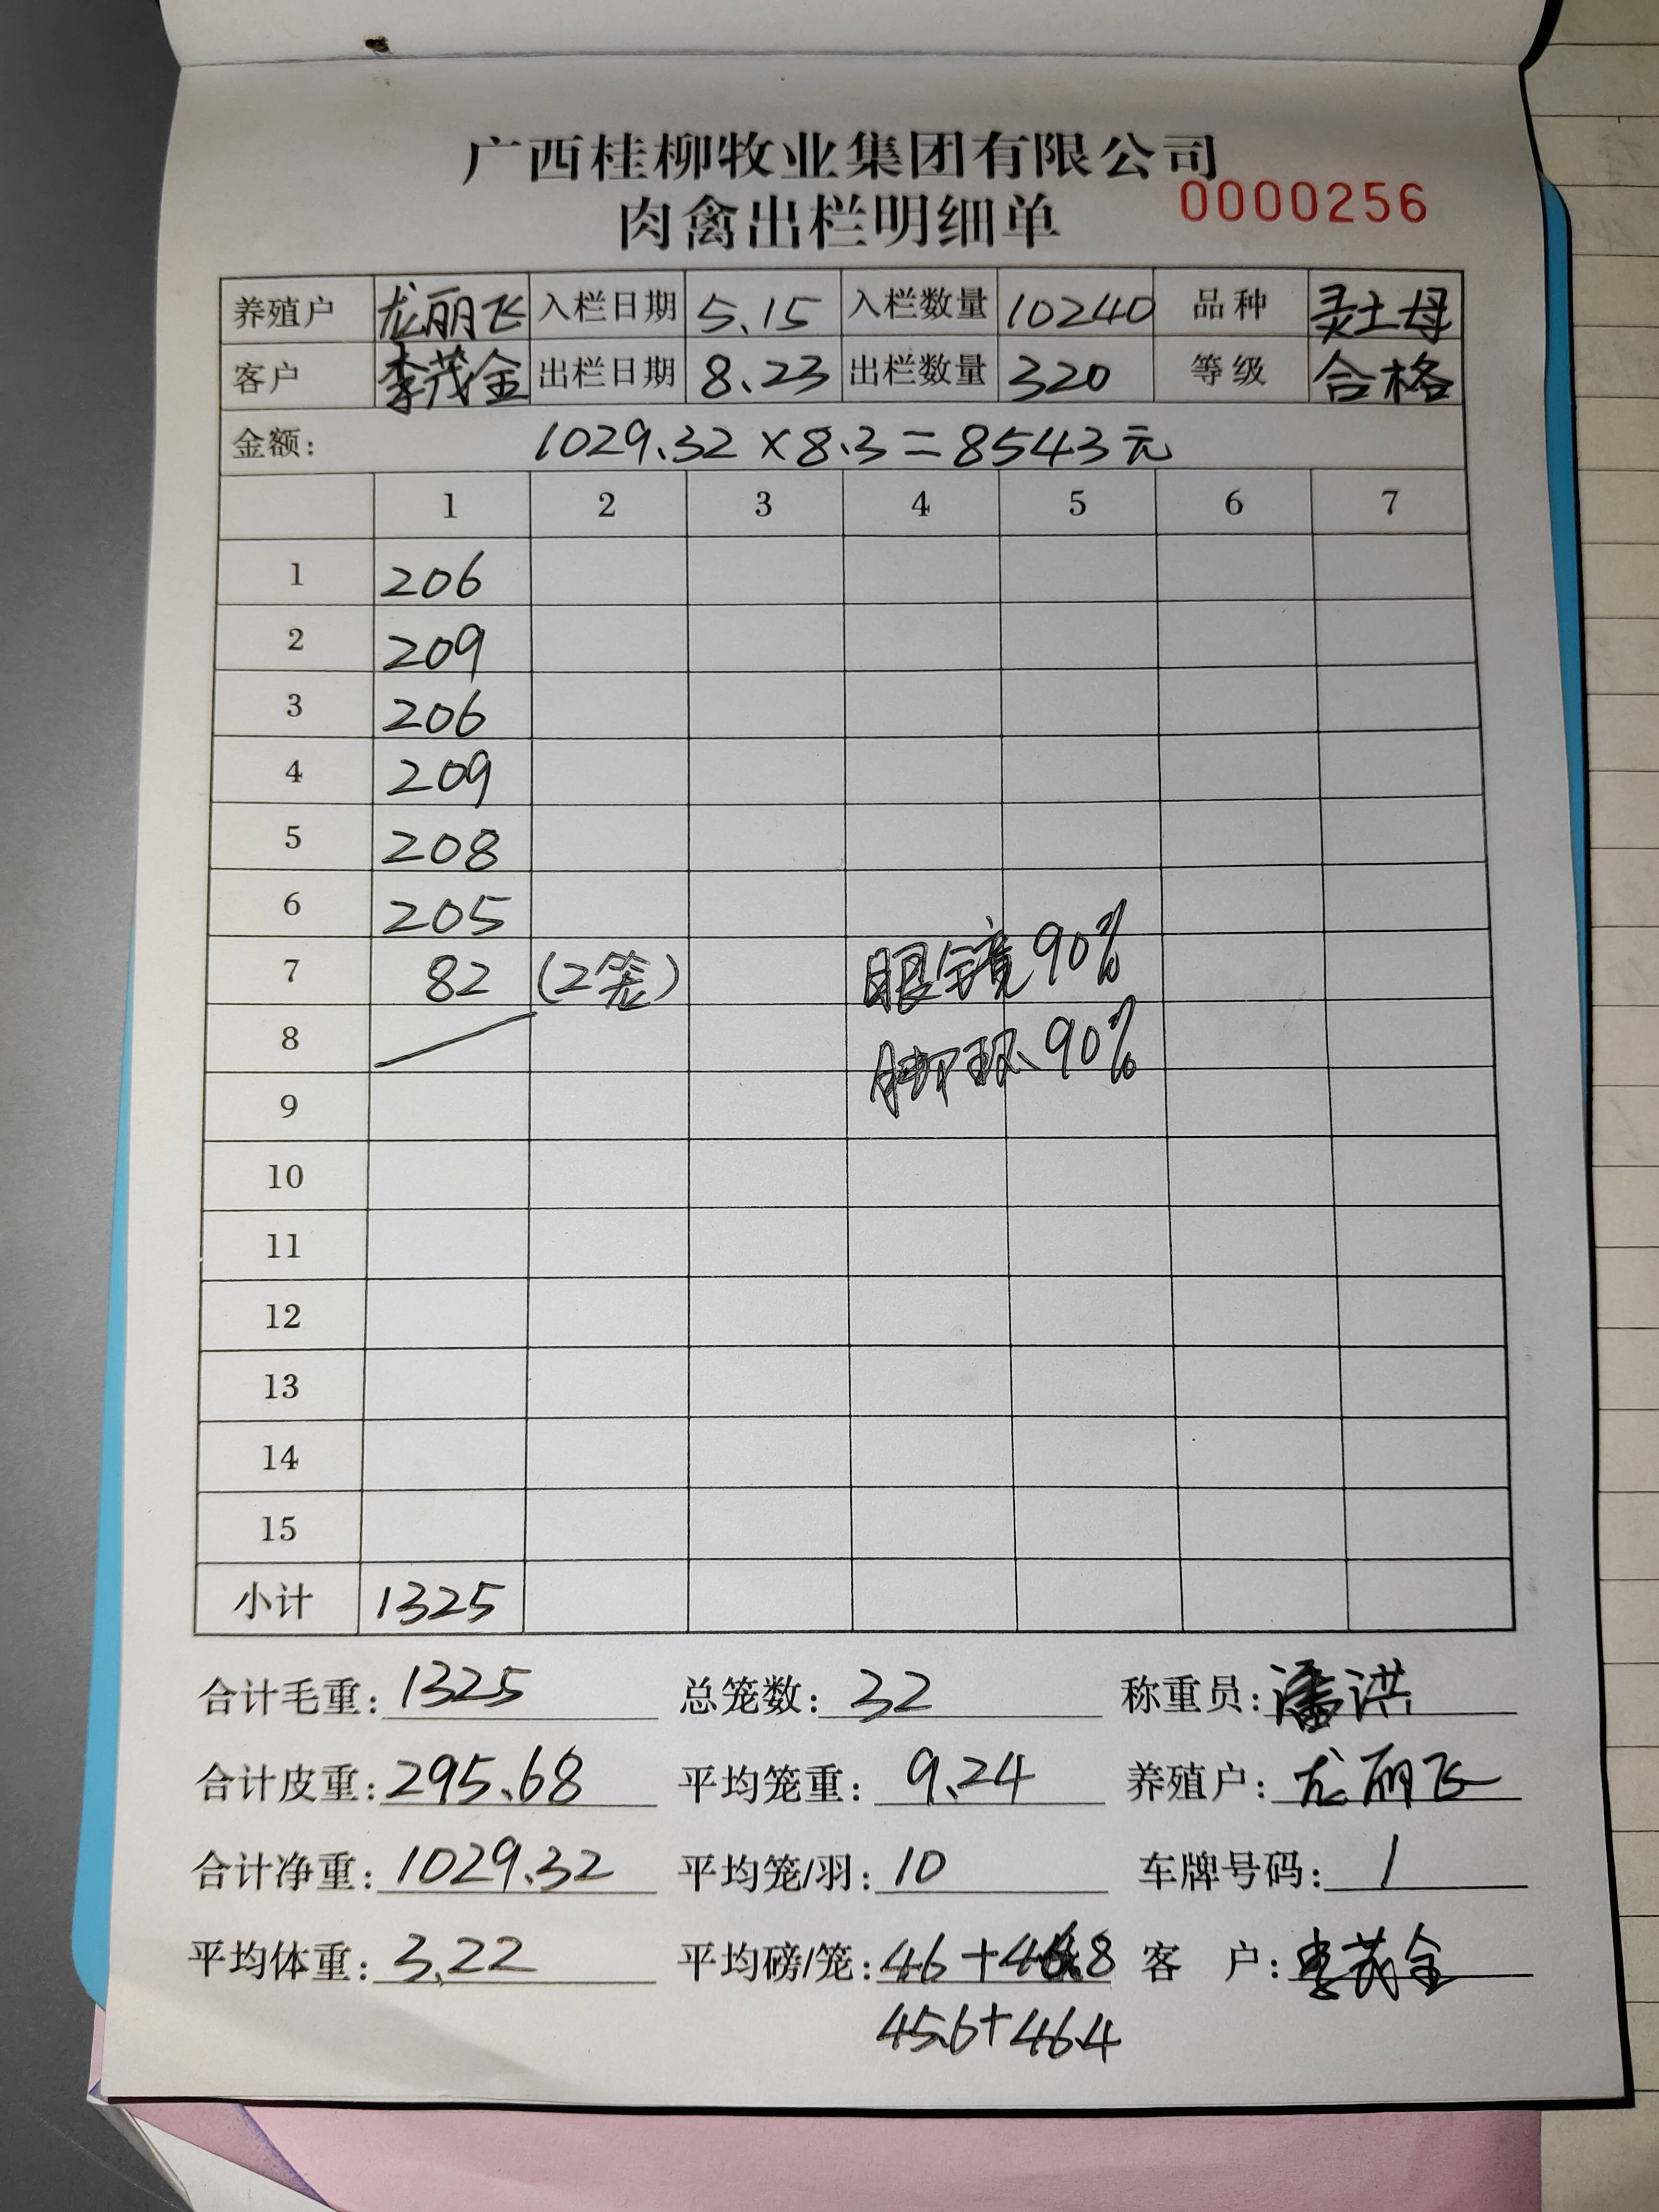 广西桂柳牧业集团有限公司
肉禽出栏明细单 0000256
养殖户 龙丽飞 入栏日期 5.15 入栏数量 10240 品种 灵土母
客户 李茂金 出栏日期 8.23 出栏数量 320 等级 合格
金额: 1029.32×8.3=8543元
1 2 3 4 5 6 7
1 206
2 209
3 206
4 209
5 208
6 205
7 82 (2笼) 眼镜90%
8 脚环90%
9
10
11
12
13
14
15
小计 1325
合计毛重: 1325 总笼数: 32 称重员: 潘洪
合计皮重: 295.68 平均笼重: 9.24 养殖户: 龙丽飞
合计净重: 1029.32 平均笼/羽: 10 车牌号码: 1
平均体重: 3.22 平均磅/笼: 46+46.8 客户: 李茂金
45.6+46.4